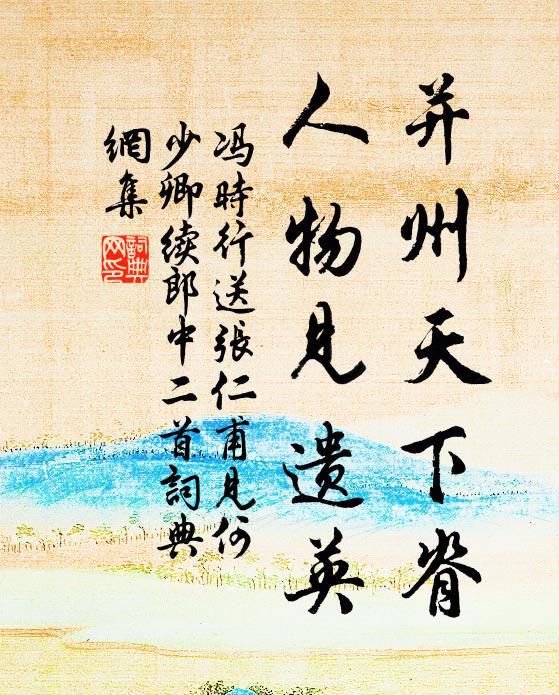 并州天下脊
人物見遺英
冯時行送張仁甫見何
少卿续郎中二首詞典
網集
詞典
网印